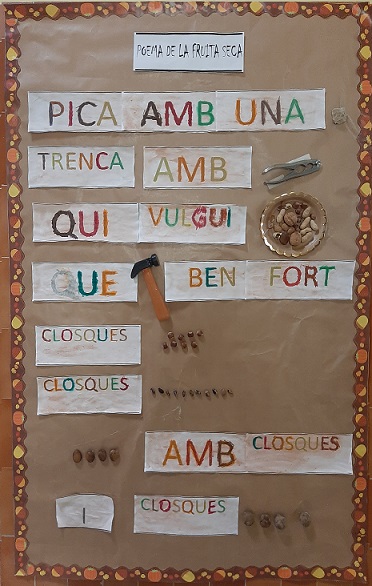 POEMA DE LA FRUITA SECA
PICA AMB UNA
TRENCA AMB
QUI VULGUI
QUE BEN FORT
CLOSQUES
CLOSQUES
AMB CLOSQUES
I CLOSQUES